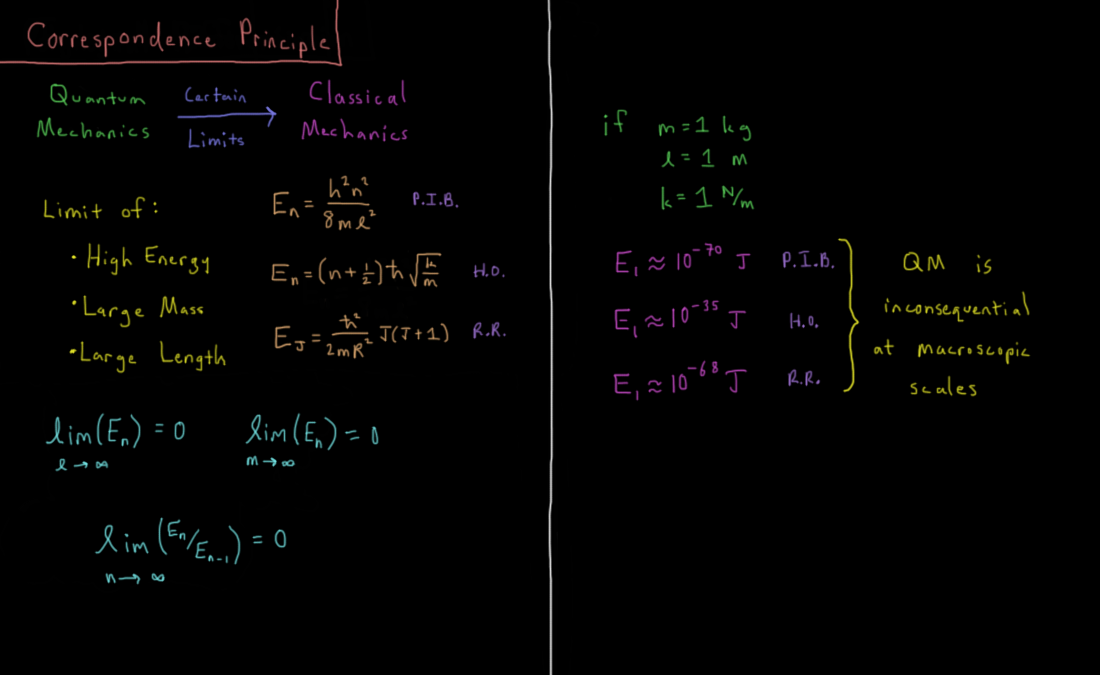 Correspondence Principle
Quantum Mechanics
Certain Limits
→
Classical Mechanics
Limit of:
• High Energy
• Large Mass
• Large Length
Eₙ = h²n²/8ml² P.I.B.
Eₙ = (n + 1/2)ħ√(k/m) H.O.
E_J = ħ²/2mR² J(J+1) R.R.
lim(Eₙ) = 0
l → ∞
lim(Eₙ) = 0
m → ∞
lim(Eₙ/Eₙ₋₁) = 0
n → ∞
if m = 1 kg
l = 1 m
k = 1 N/m
E₁ ≈ 10⁻⁷⁰ J P.I.B.
E₁ ≈ 10⁻³⁵ J H.O.
E₁ ≈ 10⁻⁶⁸ J R.R.
QM is
inconsequential
at macroscopic
scales